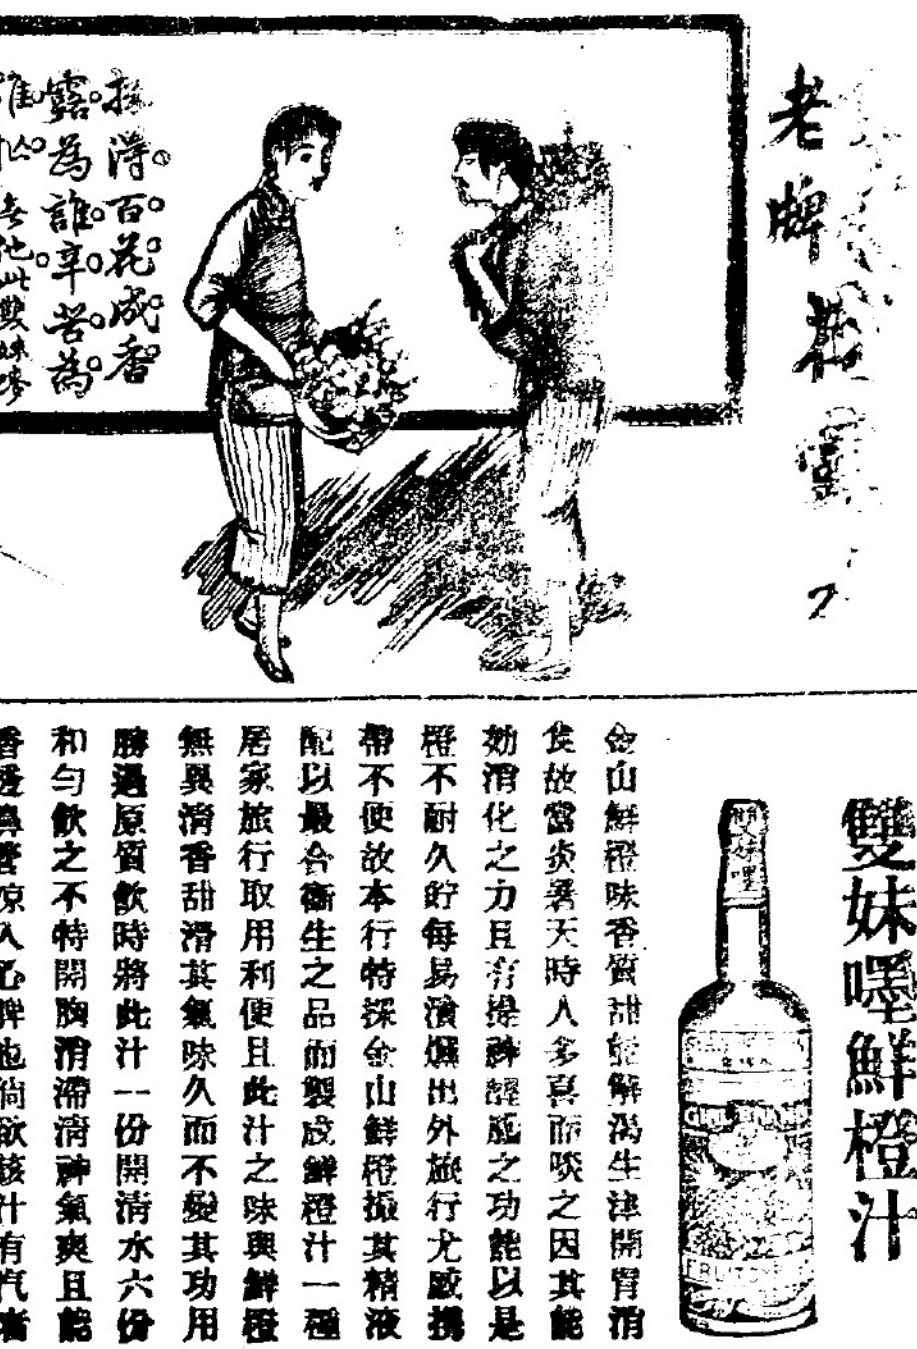 老牌花露水
採得百花成香
露為誰辛苦為
誰忙無他此雙妹嘜
雙妹嘜鮮橙汁
雙妹嘜
GIRL BRAND
金山鮮橙味香質甜能解渴生津開胃消
食故當炎暑天時人多喜而啖之因其能
効消化之力且有提神醒腦之功能以是
橙不耐久貯每易潰爛出外旅行尤感攜
帶不便故本行特採金山鮮橙搾其精液
配以最合衞生之品而製成鮮橙汁一種
居家旅行取用利便且此汁之味與鮮橙
無異清香甜滑其氣味久而不變其功用
勝過原質飲時將此汁一份開清水六份
和勻飲之不特開胸消滯清神氣爽且能
香透鼻管凉入心脾也倘欲該汁有汽者